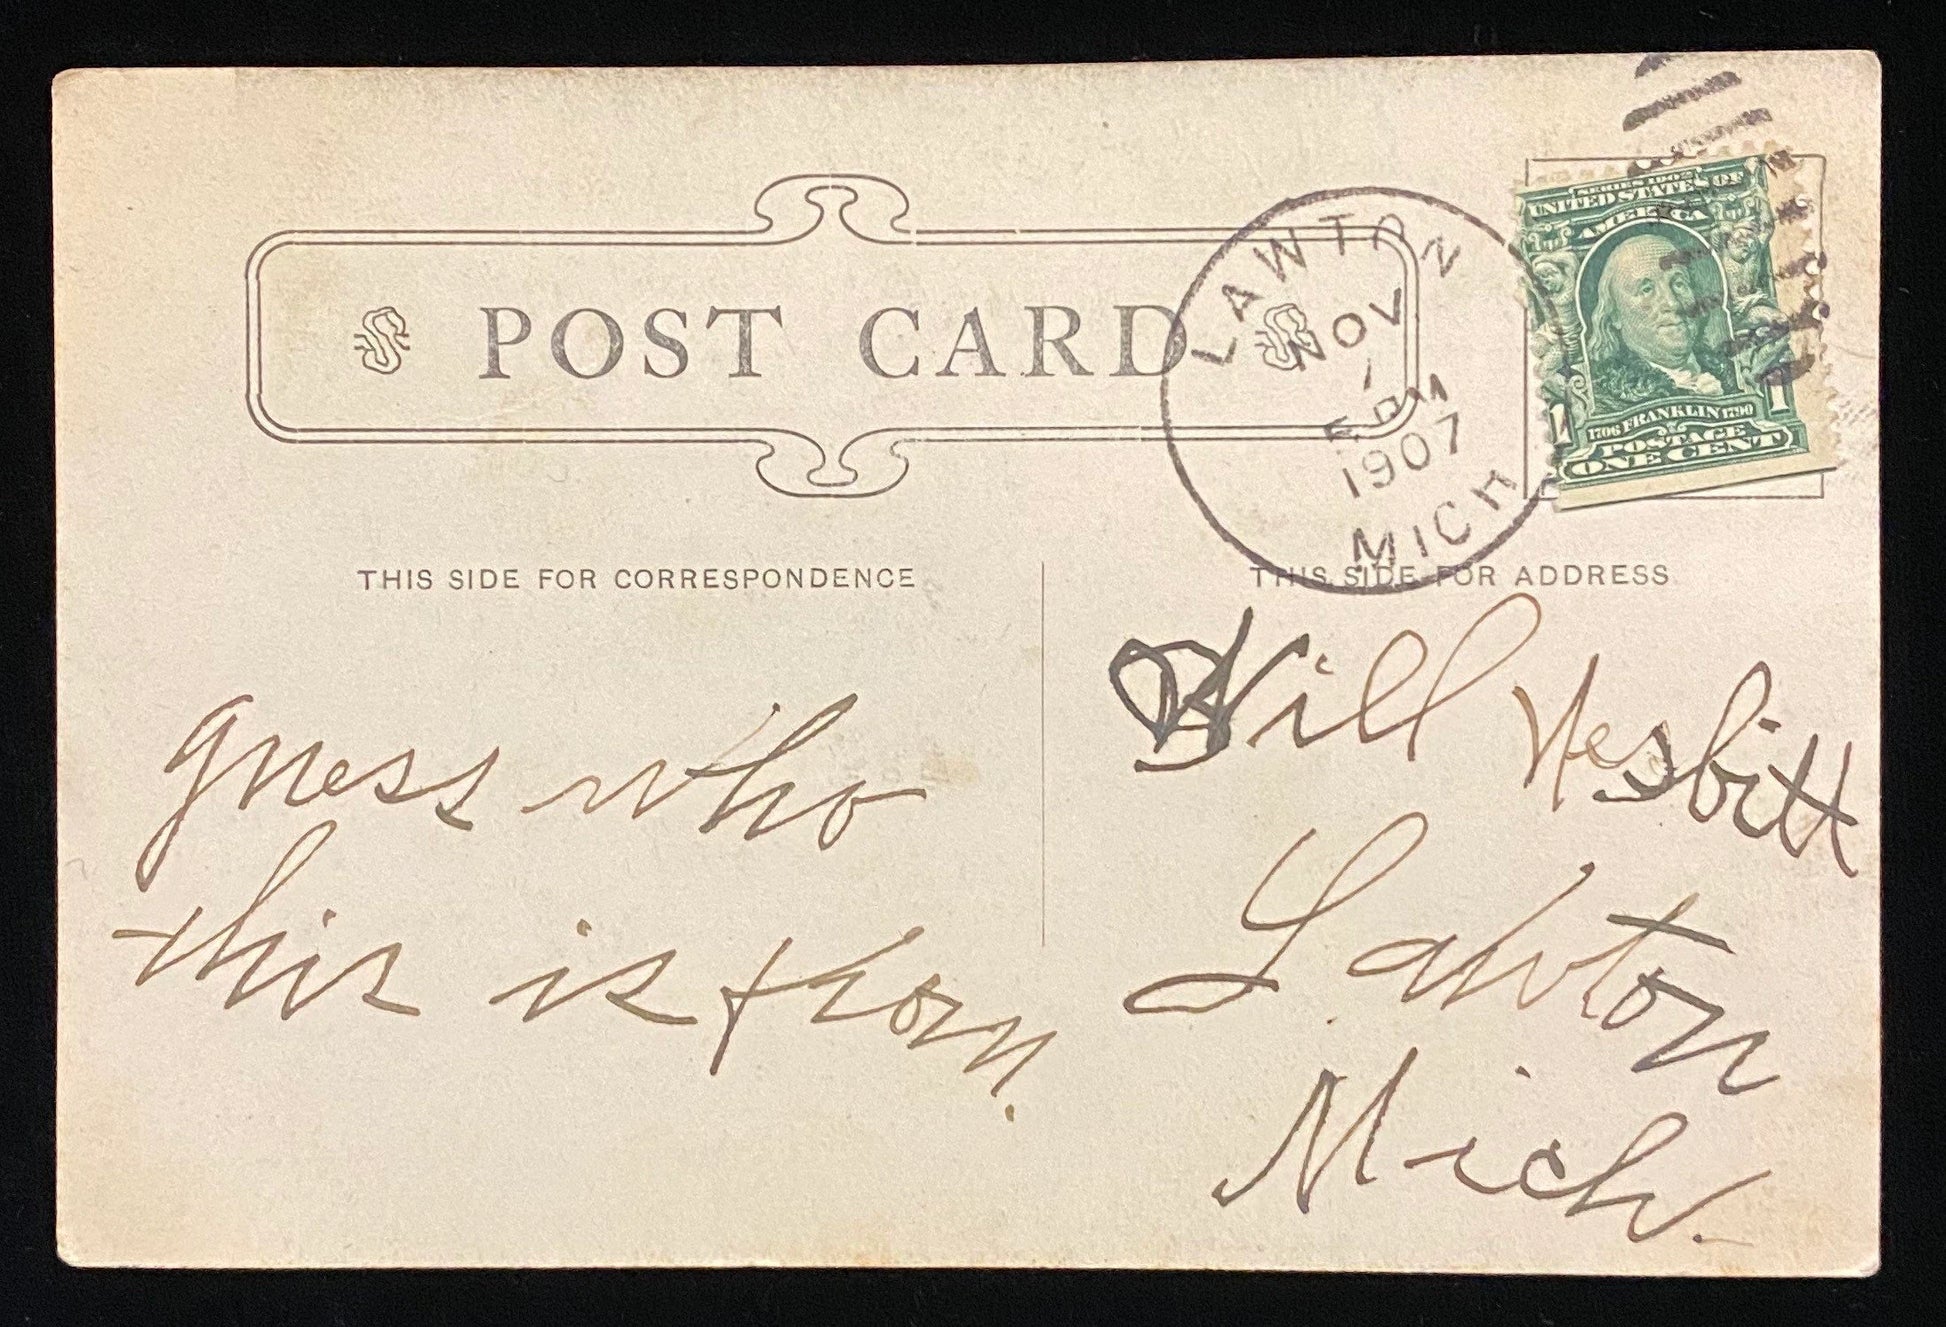 POST CARD
LAWTON
NOV
1
1907
MICH
SERIES 1902
UNITED STATES OF
AMERICA
1706 FRANKLIN 1790
1 1
POSTAGE
ONE CENT
THIS SIDE FOR CORRESPONDENCE
THIS SIDE FOR ADDRESS
guess who
this is from.
Will Nesbitt
Lawton
Mich.